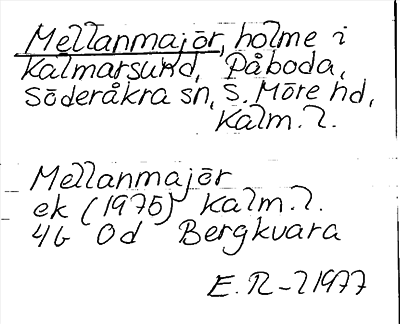 Mellanmajör, holme i
Kalmarsund, Påboda,
Söderåkra sn, S. Möre hd,
Kalm. l.
Mellanmajör
ek (1975) Kalm. l.
4G 0d Bergkvara
E. R-l 1977